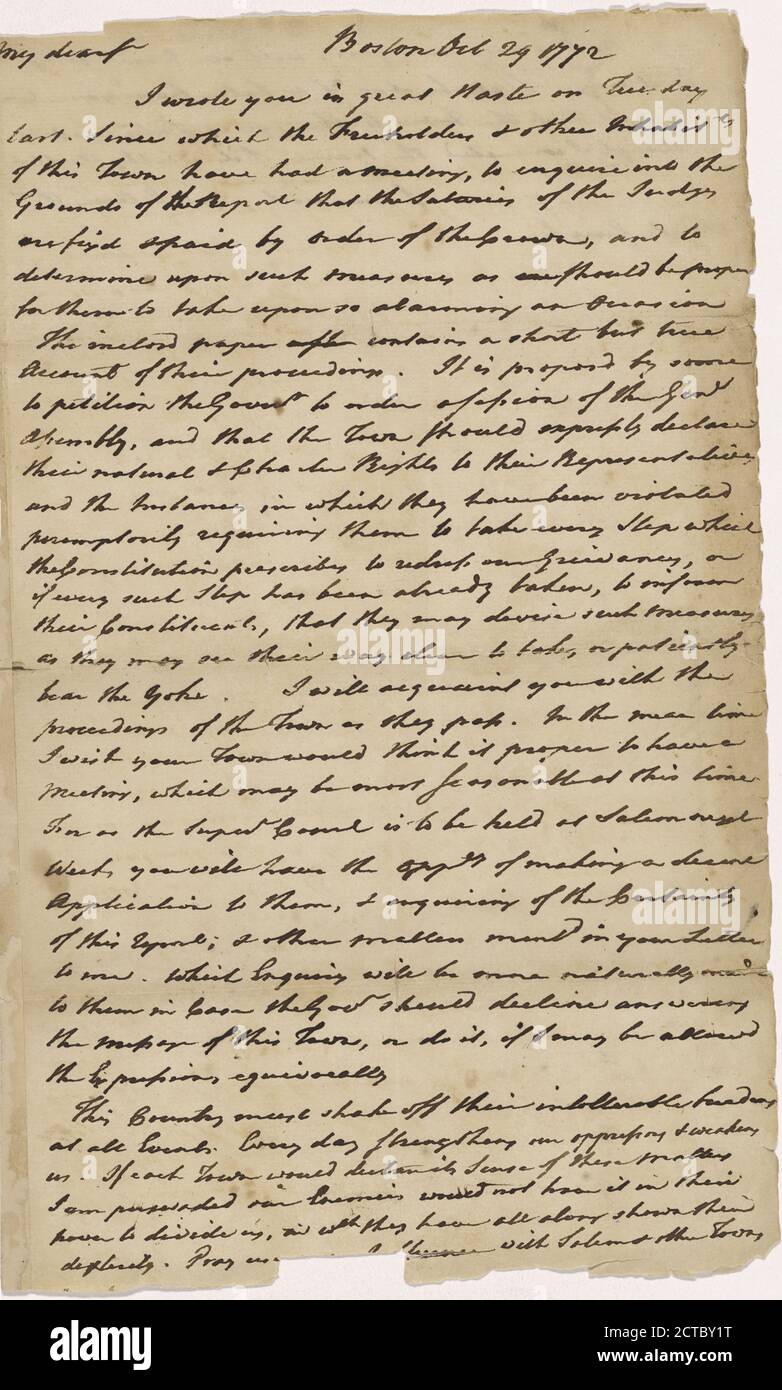 My dear Sr Boston Oct 29 1772
I wrote you in great Haste on Tuesday
last. Since which the Freeholders & other Inhabits
of this Town have had a meeting, to enquire into the
Grounds of the Report that the Salaries of the Judges
are fixd & paid by order of the Crown, and to
determine upon such measures as should be proper
for them to take upon so alarming an Occasion
The inclosd paper contains a short but true
Account of their proceedings. It is proposd by some
to petition the Governr to order a session of the Genl
Assembly, and that the Town should expressly declare
their natural & Charter Rights to their Representatives
and the Instances in which they have been violated
peremptorily requiring them to take every Step which
the Constitution prescribes to redress our Grievances, or
if every such Step has been already taken, to inform
their Constituents, that they may devise such measures
as they may see their way clear to take, or patiently
bear the Yoke. I will acquaint you with the
proceedings of the Town as they pass. In the mean time
I wish your Town would think it proper to have a
Meeting, which may be most seasonable at this time
For as the Superr Court is to be held at Salem next
Week, you will have the oppty of making a decent
Application to them, & enquiring of the Certainty
of this report; & other matters mentd in your Letter
to me. Which Enquiry will be more naturally made
to them in Case the Govr should decline answering
the message of this Town, or do it, if I may be allowd
the Expression, equivocally
This Country must shake off their intollerable burdens
at all Events. Every day strengthens our oppressors & weakens
us. If each Town would declare its Sense of these Matters
I am perswaded our Enemies would not have it in their
power to divide us, in wch they have all along shown their
dexterity. Pray use with Salem & other Towns
alamy
alamy
Image ID: 2CTBY1T
www.alamy.com